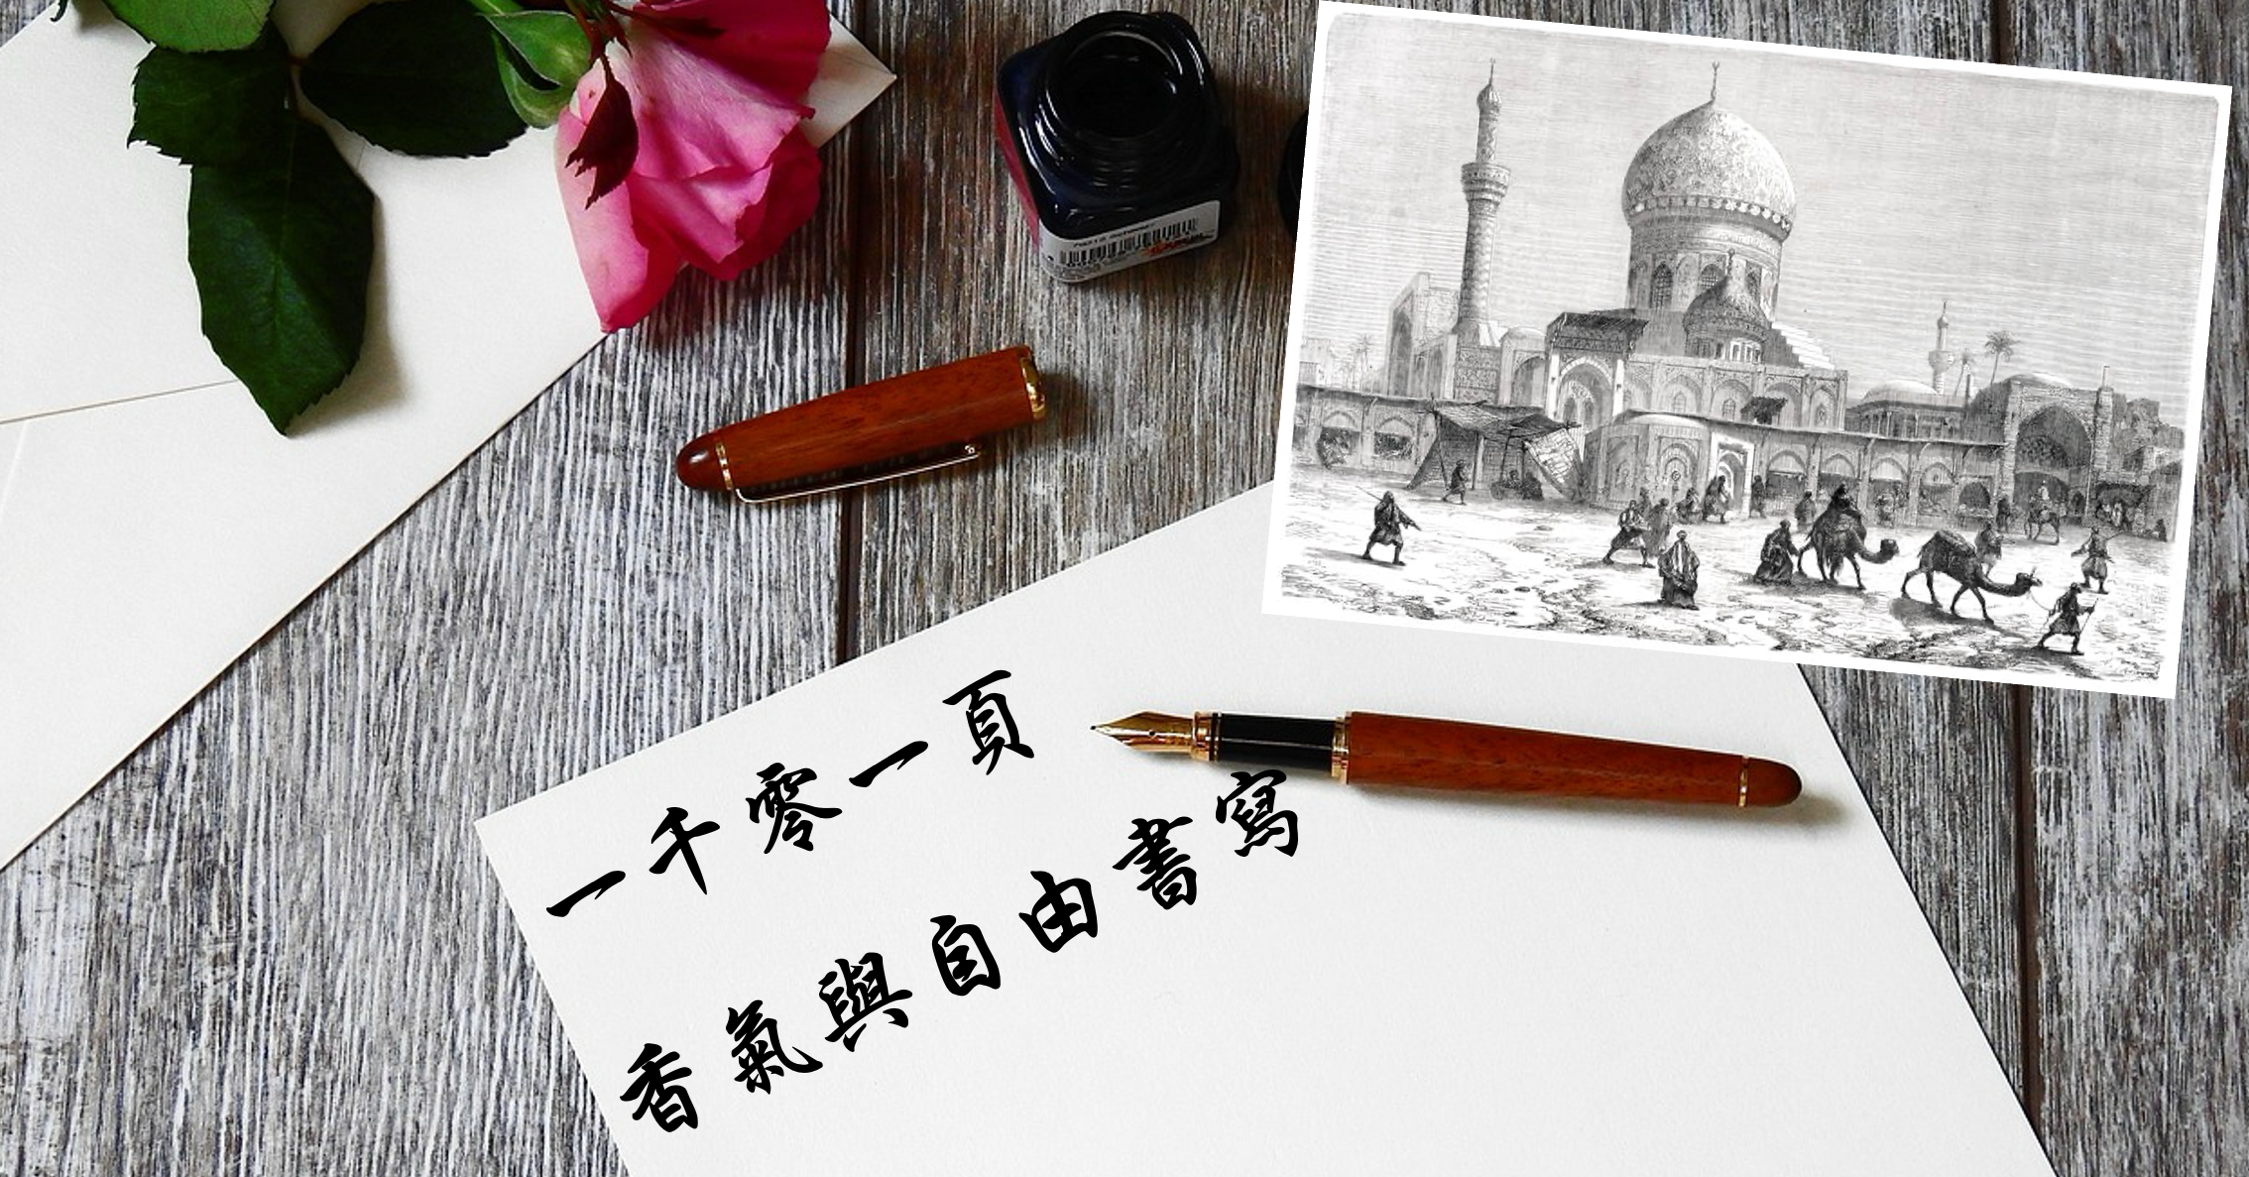 一千零一頁
香氣與自由書寫